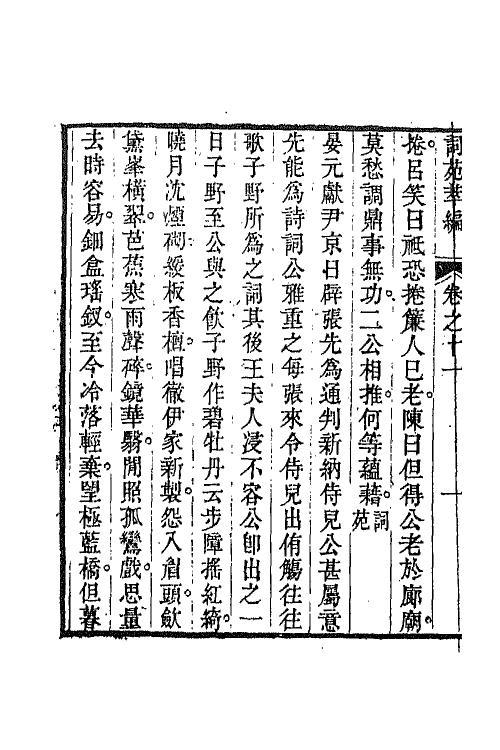 詞苑萃編　卷之十一　一
捲呂笑曰祗恐捲簾人已老陳曰但得公老於廊廟。
莫愁調鼎事無功。二公相推何等蘊藉。詞苑
晏元獻尹京日辟張先為通判新納侍兒公甚屬意
先能為詩詞公雅重之每張來令侍兒出侑觴往往
歌子野所為之詞其後王夫人寖不容公卽出之一
日子野至公與之飲子野作碧牡丹云步障搖紅綺。
曉月沈煙砌緩板香檀唱徹伊家新製怨入眉頭斂
黛峯橫翠。芭蕉寒雨聲碎。鏡華翳。閒照孤鸞戲。思量
去時容易。鈿盒瑤釵。至今冷落輕棄。望極藍橋。但暮